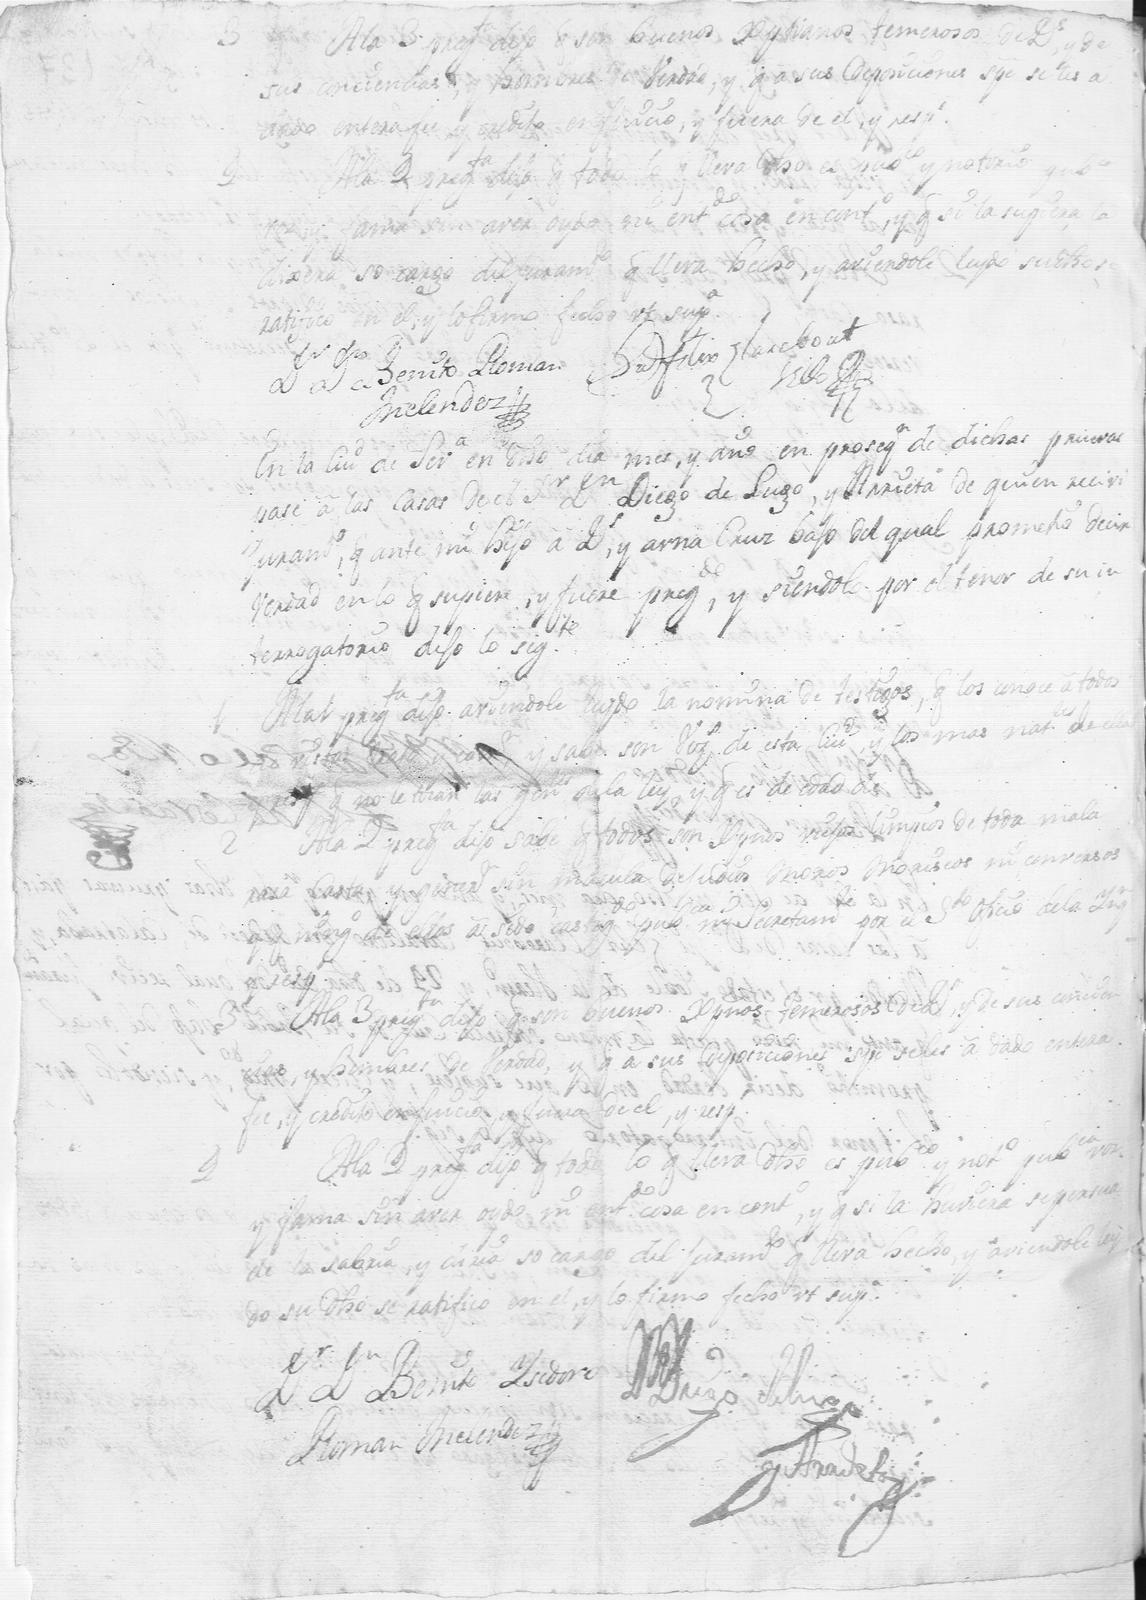 3 A la 3 preg.ta dijo q son buenos Xptianos temerosos de Ds, y de
sus conciencias, y hombres de Verdad, y q a sus Deposiciones spe se les a
dado entera fee y credito en juicio, y fuera de el, y resp.
A la preg.ta dijo q todo lo q lleva dho es pub.co y notorio pub.ca
voz, y fama sin aver oydo ni ent.do cosa en cont.o, y q si la supiera la
dixera so cargo del juram.to q lleva hecho, y aviendole leydo su dho se
ratifico en el, y lo firmo fecho vt sup.a
Dr Dn Benito Roman
Melendez
En la Ciu.d de Sev.a en dho dia mes, y año en proseq.n de dichas pruevas
pase a las Casas de el Sr Dn Diego de Lugo, y Arrueta de quien recivi
juram.to, q ante mi hijo a Ds, y a vna Cruz bajo del qual prometio decir
verdad en lo q supiere, y fuere preg.do, y siendolo por el tenor de su in
terrogatorio dijo lo sig.te
1 A la 1 preg.ta dijo aviendole leydo la nomina de testigos, q los conoce a todos
de vista trato y com.n y save son Vez.os de esta Ciu.d y los mas nat.les de ella
y resp. q no le tocan las gen.s de la ley, y q es de edad de
2 A la 2 preg.ta dijo save q todos son Xptnos viejos limpios de toda mala
raza casta y gener.n sin macula de Judios Moros Moriscos ni conversos
q ning.o de ellos a sido castig.do pub.ca ni Secretam.te por el S.to Oficio de la Ynq.n
y resp.
3 A la 3 preg.ta dijo q son buenos Xptnos temerosos de Ds, y de sus concien
cias, y hombres de Verdad, y q a sus deposiciones spe se les a dado entera
fee, y credito en juicio y fuera de el, y resp.
A la preg.ta dijo q todo lo q lleva dho es pub.co y not.o pub.ca voz
y fama sin aver oydo ni ent.do cosa en cont.o, y q si la huviera se persua
de la sabria, y diria so cargo del juram.to q lleva hecho, y aviendole ley
do su dho se ratifico en el, y lo firmo fecho vt sup.a
Dr Dn Benito Ysidoro Diego de Lugo
Roman Melendez y Arrueta